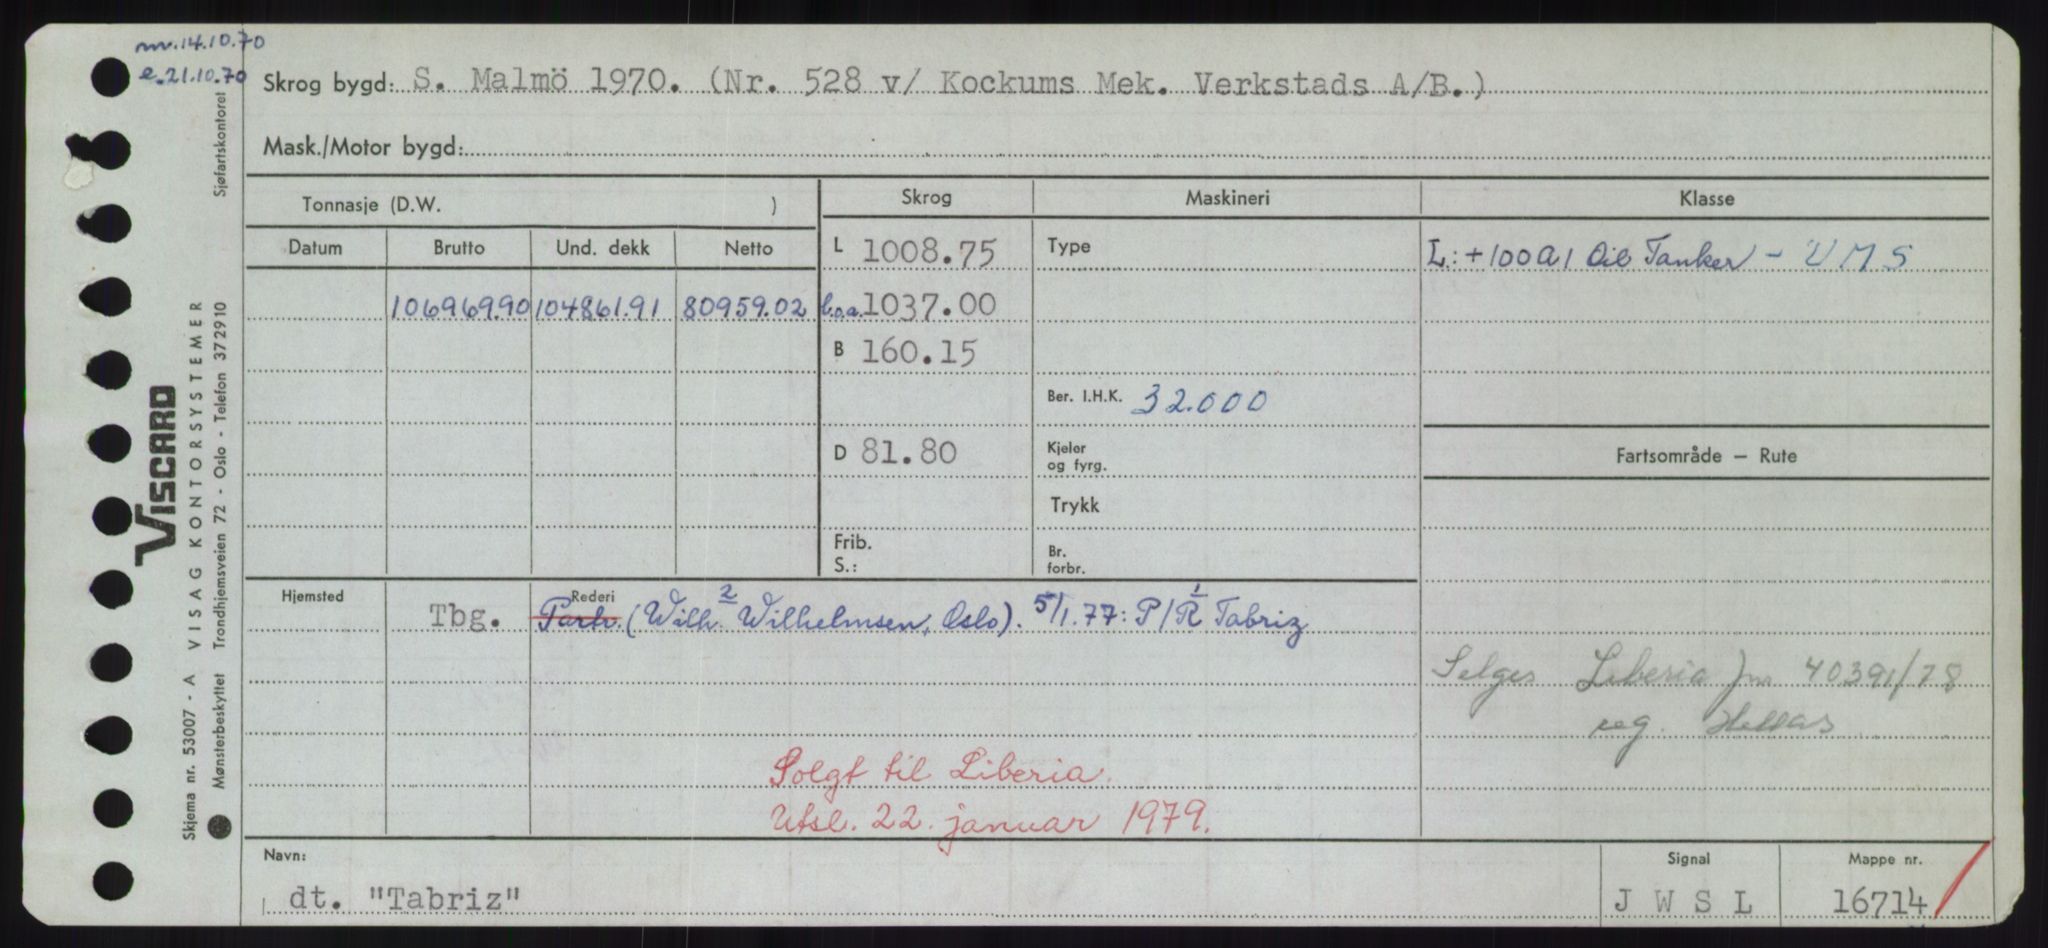 nv. 14.10.70
e. 21.10.70
Skrog bygd: S. Malmö 1970. (Nr. 528 v/ Kockums Mek. Verkstads A/B.)
Mask./Motor bygd:
Tonnasje (D.W. )
Skrog
Maskineri
Klasse
Datum
Brutto
Und. dekk
Netto
L 1008.75
Type
L: + 100 A 1 Oil Tanker - UMS
106969.90 104861.91 80959.02
l.o.a. 1037.00
B 160.15
Ber. I.H.K. 32.000
D 81.80
Kjeler
og fyrg.
Fartsområde — Rute
Trykk
Frib.
S.:
Br.
forbr.
Hjemsted
Tbg.
Rederi
Partr. (Wilh. 2 Wilhelmsen, Oslo). 5/1.77: P/R 1 Tabriz
Selges Liberia jnr 40391/78
reg. Hellas
Solgt til Liberia.
Utsl. 22. januar 1979.
Navn:
dt. "Tabriz"
Signal
J W S L
Mappe nr.
16714
VISCARD
VISAG KONTORSYSTEMER
Skjema nr. 53007 - A
Mønsterbeskyttet Trondhjemsveien 72 - Oslo - Telefon 372910 Sjøfartskontoret